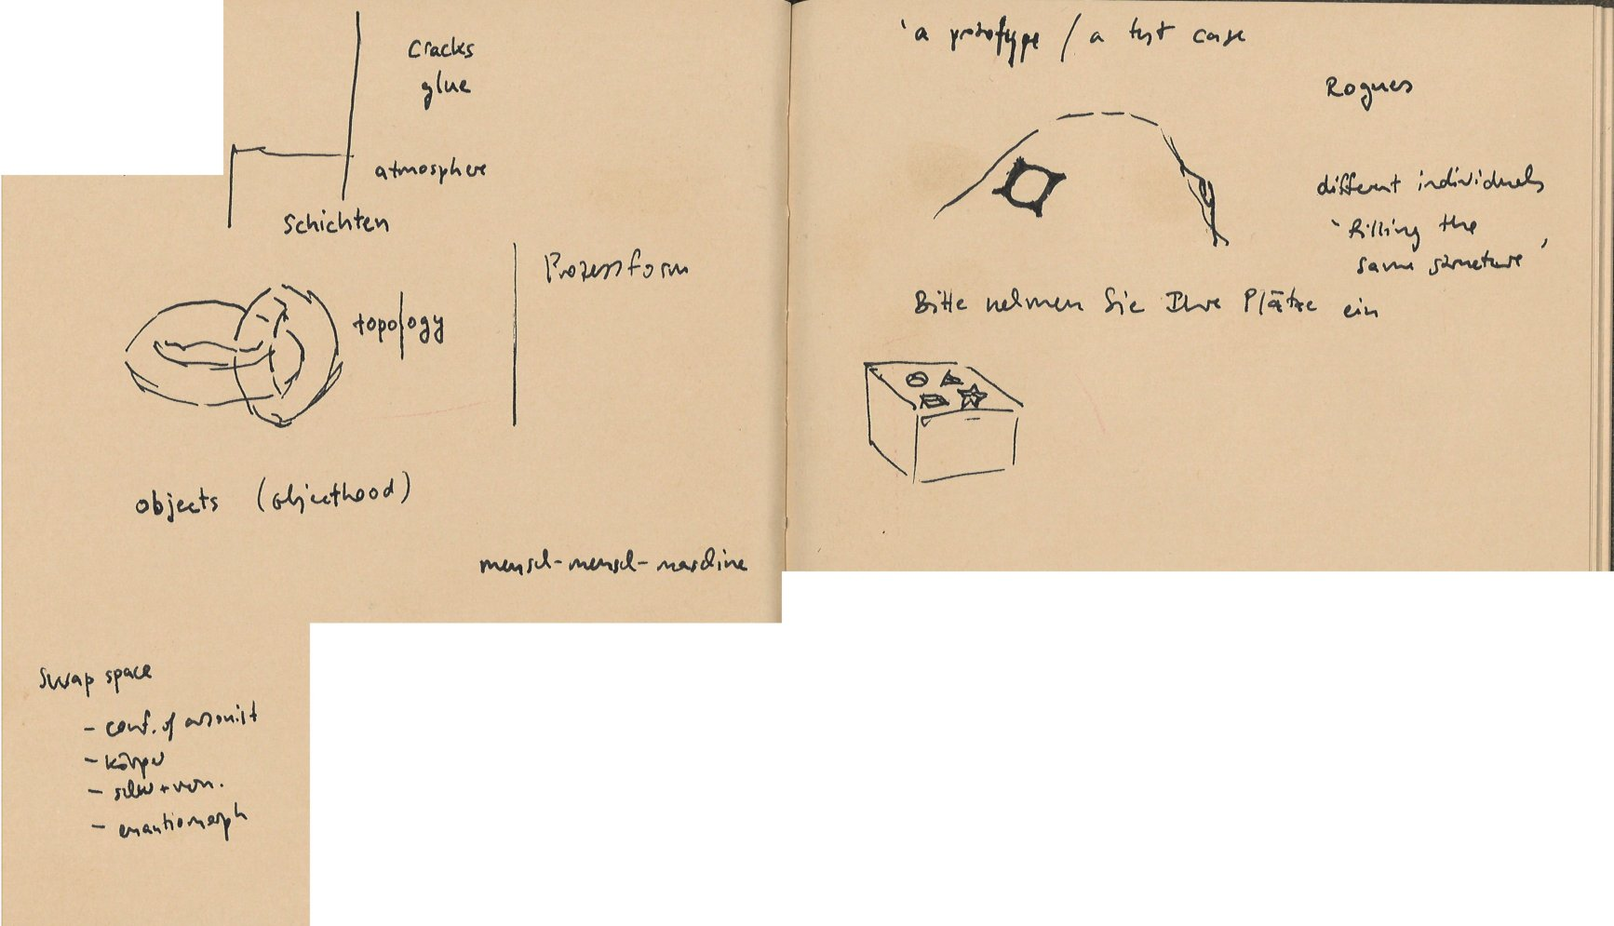 Cracks
glue
atmosphere
Schichten
topology
Prozessform
objects (objecthood)
mensch-mensch-maschine
Swap space
- conf. of arsonist
- körper
- enantiomorph
'a prototype / a test case
Rogues
different individuals
'filling the
same structure'
Bitte nehmen Sie Ihre Plätze ein